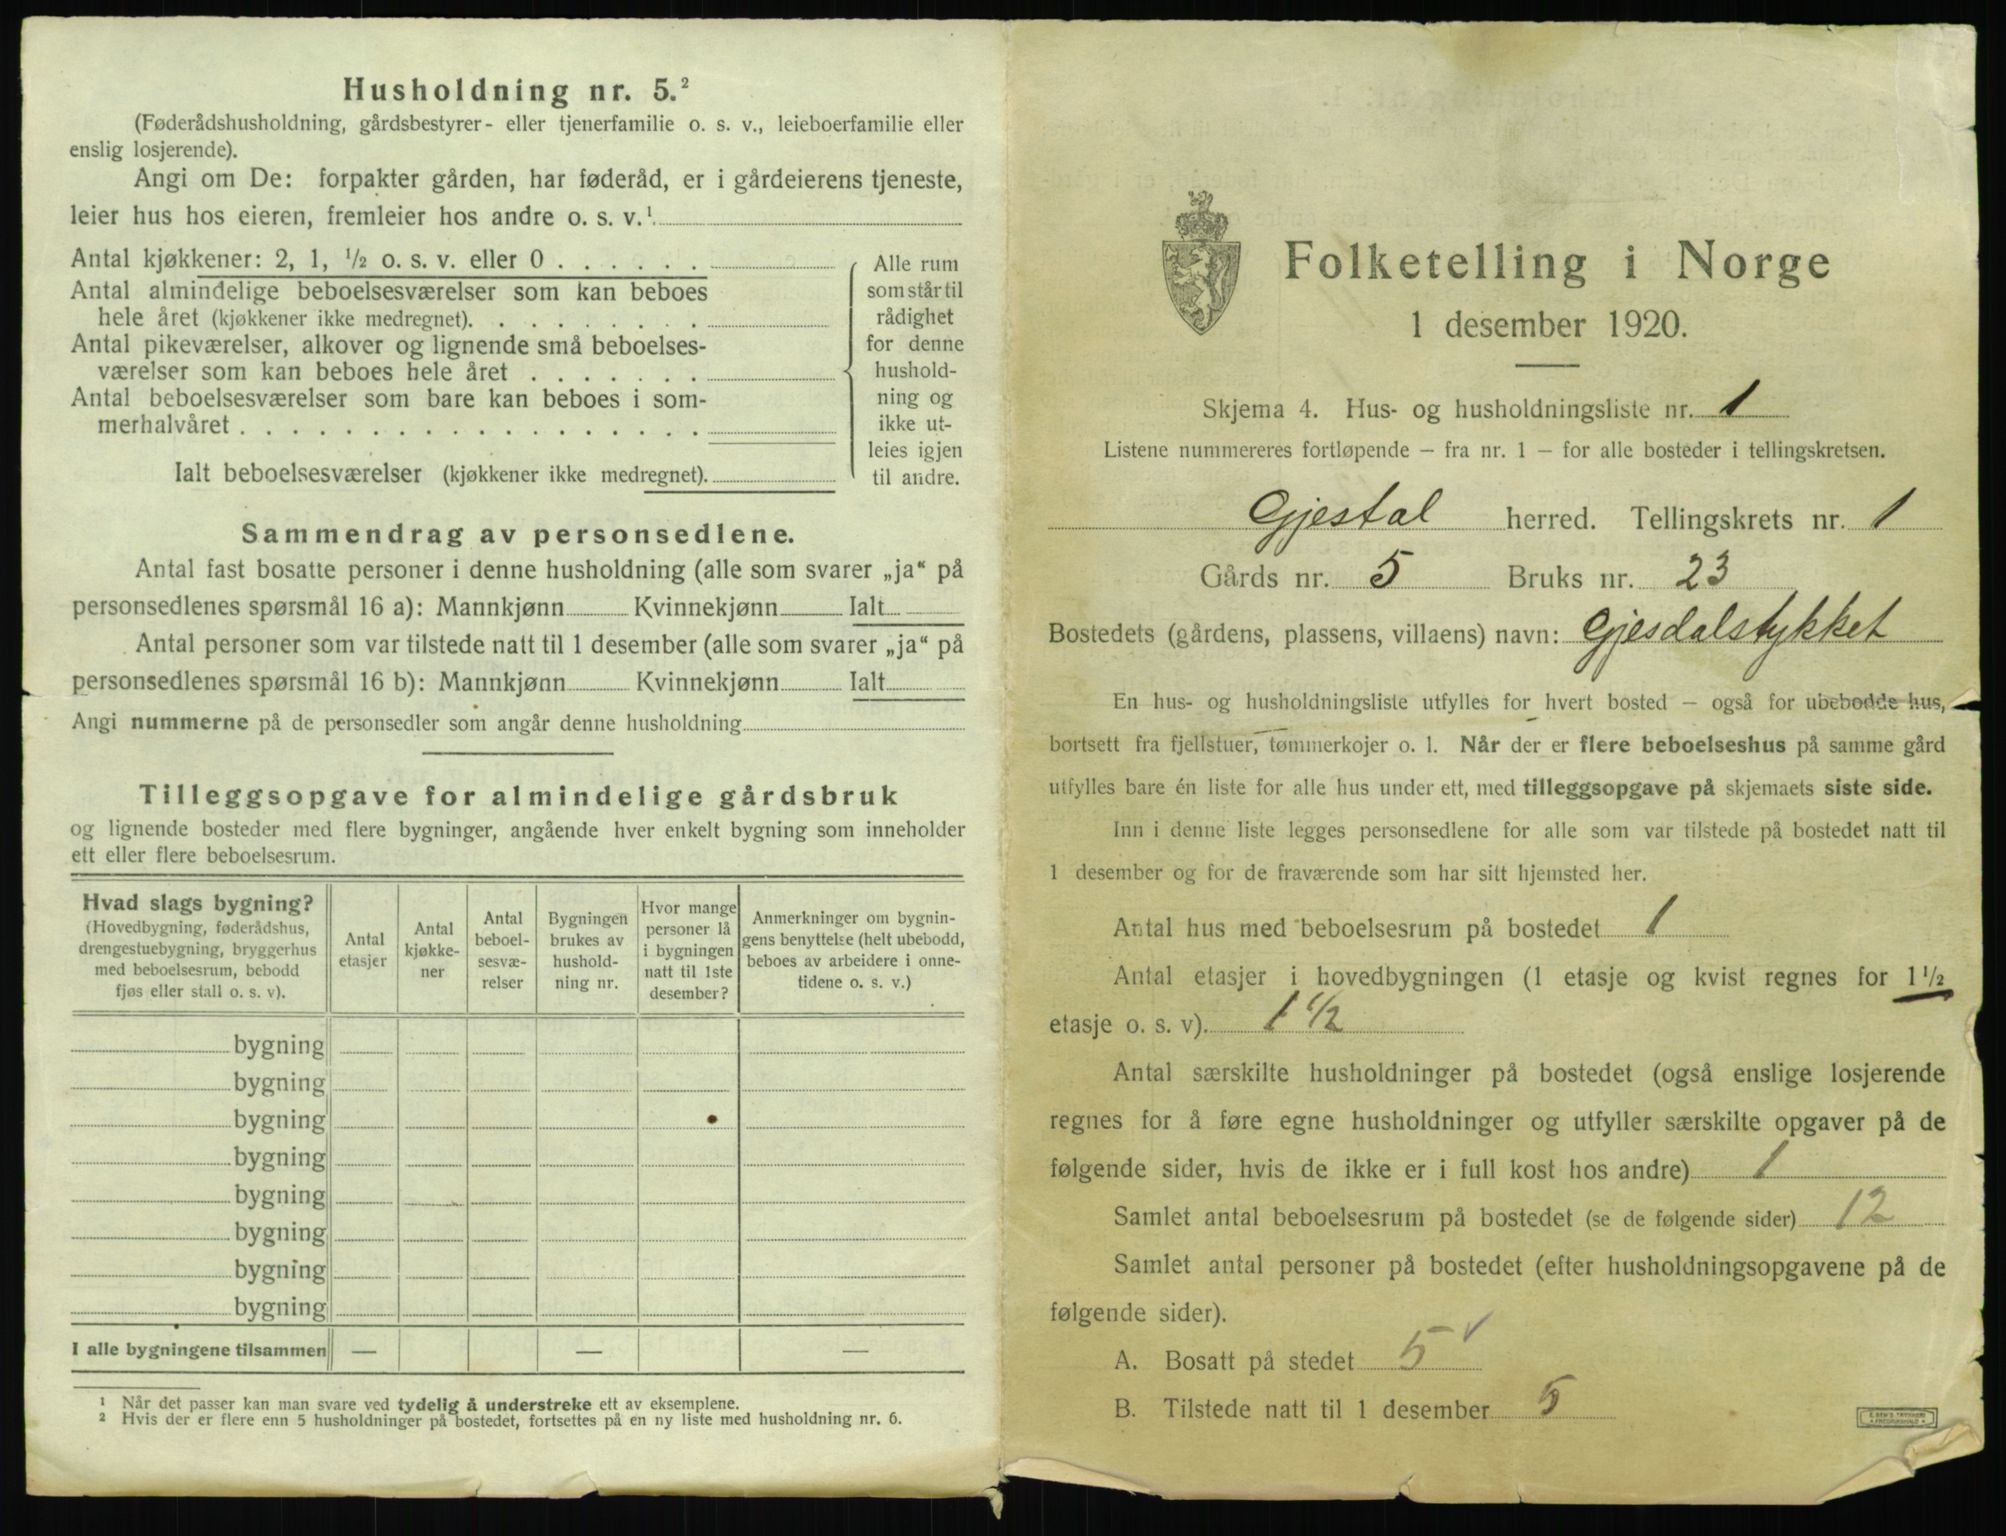 Husholdning nr. 5.²
(Føderådshusholdning, gårdsbestyrer- eller tjenerfamilie o. s. v., leieboerfamilie eller
enslig losjerende).
Angi om De: forpakter gården, har føderåd, er i gårdeierens tjeneste,
leier hus hos eieren, fremleier hos andre o. s. v.¹
Antal kjøkkener: 2, 1, ½ o. s. v. eller 0 . . . . . .
Antal almindelige beboelsesværelser som kan beboes
hele året (kjøkkener ikke medregnet). . . . . . . . .
Antal pikeværelser, alkover og lignende små beboelses-
værelser som kan beboes hele året . . . . . . .
Antal beboelsesværelser som bare kan beboes i som-
merhalvåret . . . . . . . . . . . . . . . . . .
Ialt beboelsesværelser (kjøkkener ikke medregnet).
Alle rum
som står til
rådighet
for denne
hushold-
ning og
ikke ut-
leies igjen
til andre.
Sammendrag av personsedlene.
Antal fast bosatte personer i denne husholdning (alle som svarer „ja“ på
personsedlenes spørsmål 16 a): Mannkjønn Kvinnekjønn Ialt
Antal personer som var tilstede natt til 1 desember (alle som svarer „ja“ på
personsedlenes spørsmål 16 b): Mannkjønn Kvinnekjønn Ialt
Angi nummerne på de personsedler som angår denne husholdning
Tilleggsopgave for almindelige gårdsbruk
og lignende bosteder med flere bygninger, angående hver enkelt bygning som inneholder
ett eller flere beboelsesrum.
Hvad slags bygning?
(Hovedbygning, føderådshus,
drengestuebygning, bryggerhus
med beboelsesrum, bebodd
fjøs eller stall o. s. v).
Antal
etasjer
Antal
kjøkke-
ner
Antal
beboel-
sesvæ-
relser
Bygningen
brukes av
hushold-
ning nr.
Hvor mange
personer lå
i bygningen
natt til 1ste
desember?
Anmerkninger om bygnin-
gens benyttelse (helt ubebodd,
beboes av arbeidere i onne-
tidene o. s. v.)
bygning
bygning
bygning
bygning
bygning
bygning
bygning
bygning
I alle bygningene tilsammen — — —
¹ Når det passer kan man svare ved tydelig å understreke ett av eksemplene.
² Hvis der er flere enn 5 husholdninger på bostedet, fortsettes på en ny liste med husholdning nr. 6.
Folketelling i Norge
1 desember 1920.
Skjema 4. Hus- og husholdningsliste nr. 1
Listene nummereres fortløpende – fra nr. 1 – for alle bosteder i tellingskretsen.
Gjestal herred. Tellingskrets nr. 1
Gårds nr. 5 Bruks nr. 23
Bostedets (gårdens, plassens, villaens) navn: Gjesdalstykket
En hus- og husholdningsliste utfylles for hvert bosted – også for ubebodde hus,
bortsett fra fjellstuer, tømmerkojer o. l. Når der er flere beboelseshus på samme gård
utfylles bare én liste for alle hus under ett, med tilleggsopgave på skjemaets siste side.
Inn i denne liste legges personsedlene for alle som var tilstede på bostedet natt til
1 desember og for de fraværende som har sitt hjemsted her.
Antal hus med beboelsesrum på bostedet 1
Antal etasjer i hovedbygningen (1 etasje og kvist regnes for 1½
etasje o. s. v). 1 ½
Antal særskilte husholdninger på bostedet (også enslige losjerende
regnes for å føre egne husholdninger og utfyller særskilte opgaver på de
følgende sider, hvis de ikke er i full kost hos andre) 1
Samlet antal beboelsesrum på bostedet (se de følgende sider) 12
Samlet antal personer på bostedet (efter husholdningsopgavene på de
følgende sider).
A. Bosatt på stedet 5 ✓
B. Tilstede natt til 1 desember 5